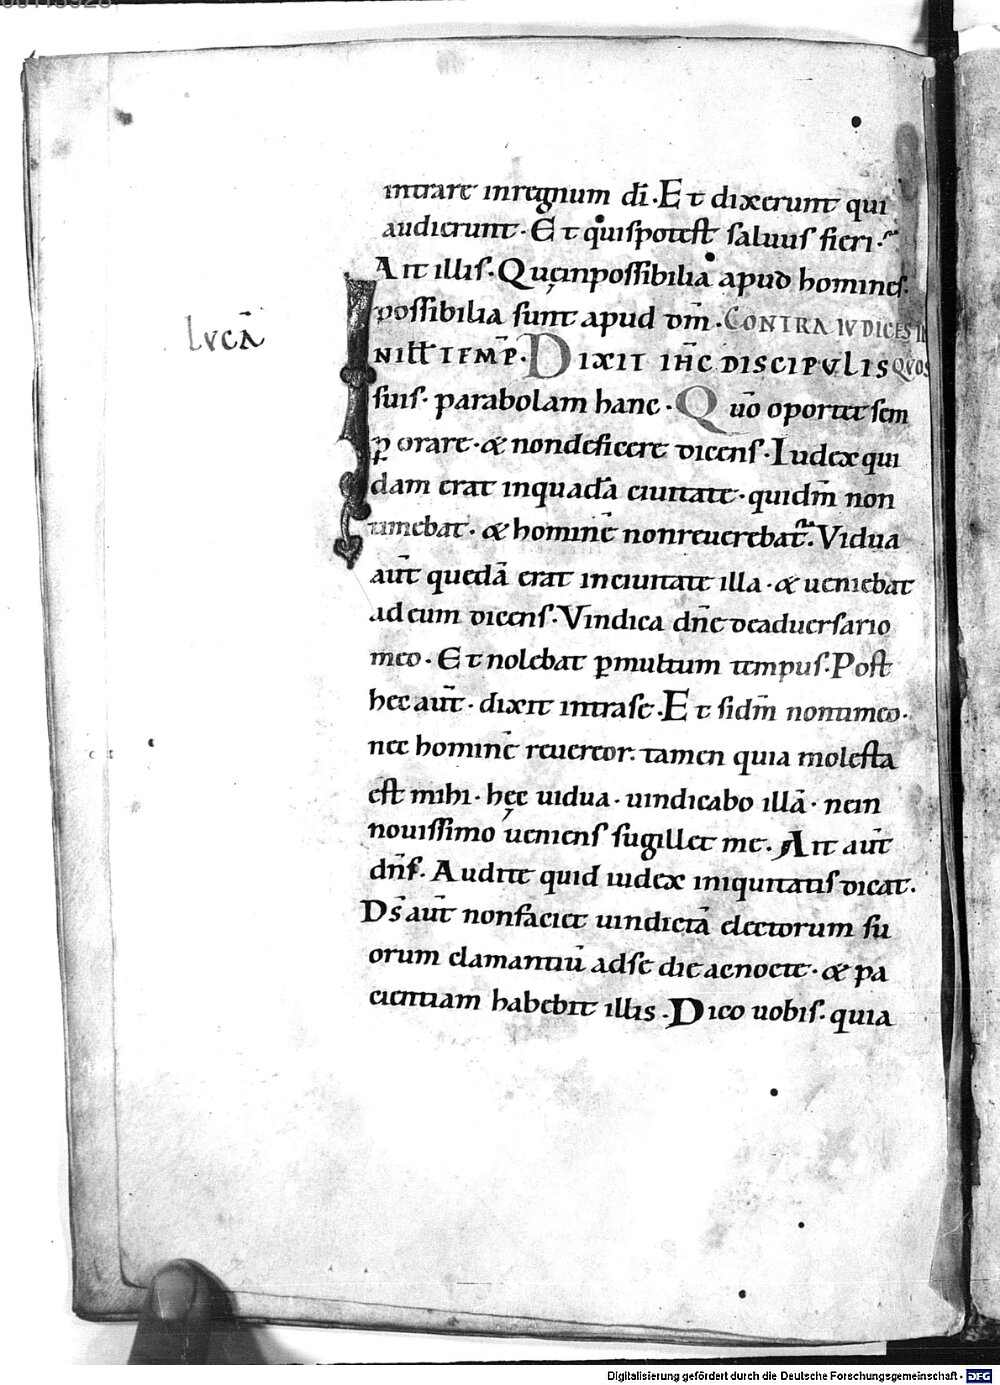 intrare inregnum dī. Et dixerunt qui
audierunt. Et quispotest saluus fieri.
Ait illis. Quę inpossibilia apud homines.
possibilia sunt apud dm̄. CONTRA IVDICES IN
IN ILL̄ TEMP̄. DIXIT IHC̄ DISCIPVLIS QVOS
LVCĀ
suis. parabolam hanc. Quō oportet sem
ꝑ orare. & nondeficere dicens. Iudex qui
dam erat inquadā ciuitate. quidm̄ non
timebat. & hominē nonreuerebat. Vidua
aut̄ quedā erat inciuitate illa. & ueniebat
adeum dicens. Vindica dnē deaduersario
meo. Et nolebat ꝑmultum tempus. Post
hec aut̄. dixit intrase. Et sidm̄ nontimeo.
nec hominē reuereor. tamen quia molesta
est mihi. hęc uidua. uindicabo illā. nein
nouissimo ueniens sugillet me. Ait aut̄
dn̄s. Audite quid iudex iniquitatis dicat.
Ds̄ aut̄ nonfaciet uindictā electorum su
orum clamantiū adse die acnocte. & pa
cientiam habebit illis. Dico uobis. quia
Digitalisierung gefördert durch die Deutsche Forschungsgemeinschaft - DFG